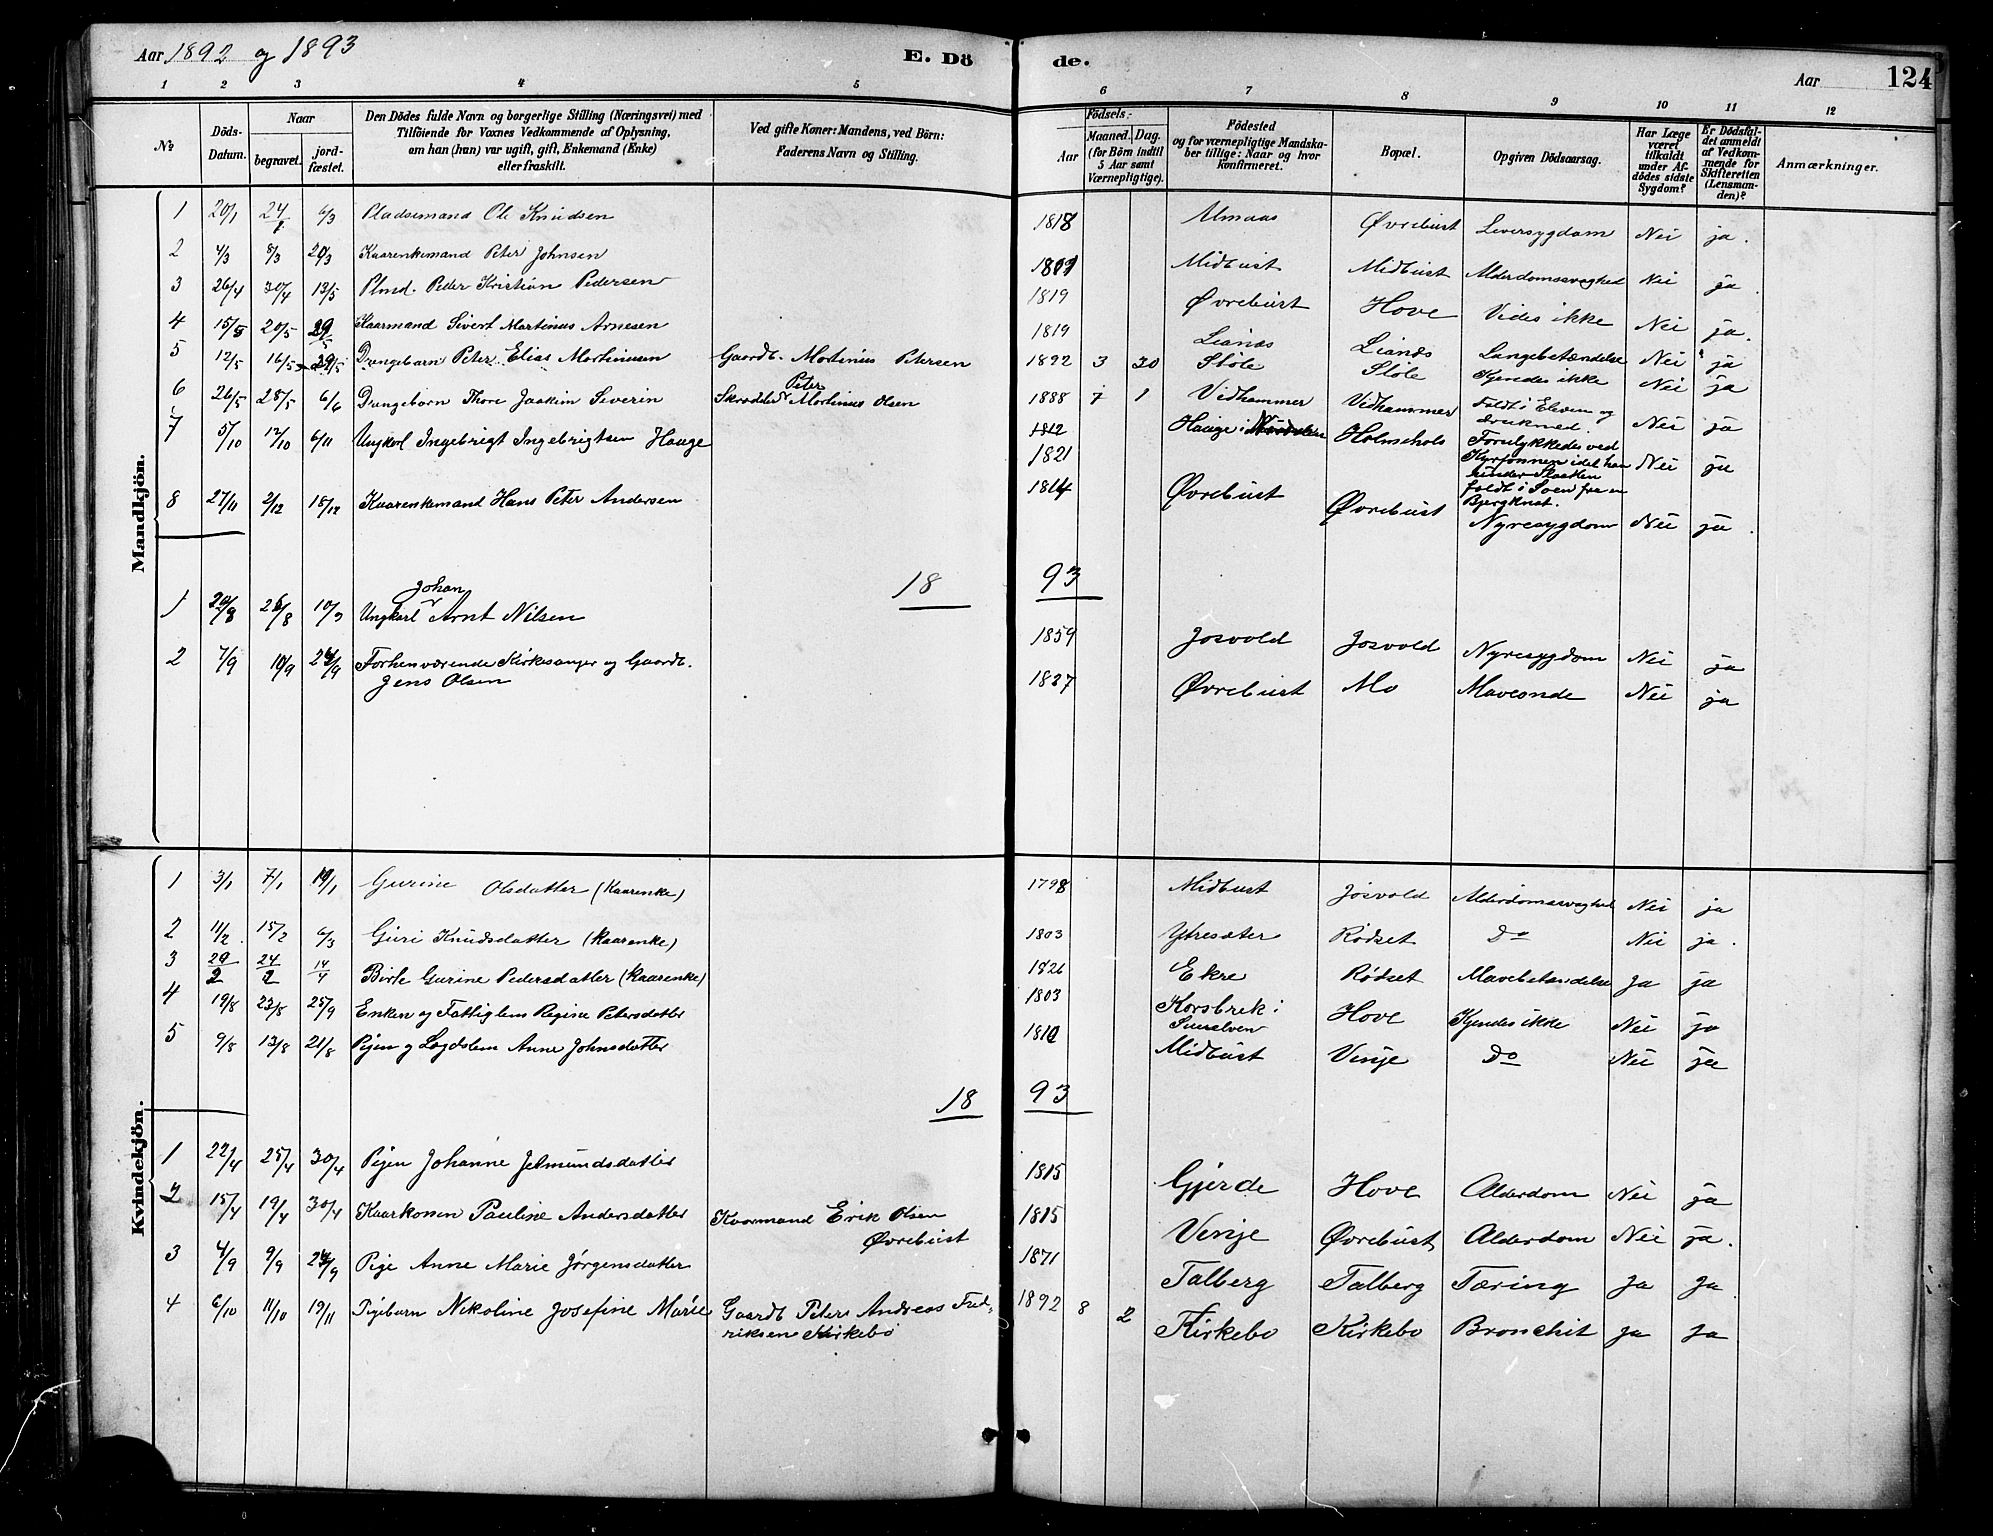 Aar 1892 og 1893
E. Dö
de.
Aar
124
1 2 3 4 5 6 7 8 9 10 11 12
№
Döds-Datum.
Naar
begravet.
jord-fæstet.
Den Dödes fulde Navn og borgerlige Stilling (Næringsvei) med
Tilföiende for Voxnes Vedkommende af Oplysning,
om han (hun) var ugift, gift, Enkemand (Enke)
eller fraskilt.
Ved gifte Koner: Mandens, ved Börn:
Faderens Navn og Stilling.
Födsels-
Aar
Maaned. Dag.
(for Börn indtil
5 Aar samt
Værnepligtige).
Födested
og for værnepligtige Mandska-
ber tillige: Naar og hvor
konfirmeret.
Bopæl.
Opgiven Dödsaarsag.
Har Læge
været
tilkaldt
under Af-
dödes sidste
Sygdom?
Er Dödsfal-
det anmeldt
af Vedkom-
mende for
Skifteretten
(Lensman-
den)?
Anmærkninger.
Mandkjön.
1 20/1 24/1 6/3 Pladsemand Ole Knudsen 1818 Almaas Øvrebust Leversygdom Nei ja.
2 4/3 8/3 20/3 Kaarenkemand Peter Johnsen Midbust Midbust Alderdomssvaghed Nei ja
3 26/4 30/4 13/5 Plmd. Peder Kristian Pedersen 1819 Øvrebust Hove Vides ikke Nei ja.
4 15/5 20/5 29/5 Kaarmand Sivert Martinus Arnesen 1819 Lianes Lianes Lungebetændelse Nei ja
5 12/5 16/5 29/5 Drengebarn Peter Elias Martinusen Gaardb. Martinus Petersen 1892 3 30 Støle Støle Kjendes ikke Nei ja
6 26/5 28/5 6/6 Drengebarn Thore Joakim Severin Skrædder Peter Martinus Olsen 1888 7 1 Vidhammer Vidhammer Faldt i Elven og drukned. Nei ja
7 5/10 12/10 6/11 Ungkarl Ingebrigt Ingebrigtsen Hauge 1812
1821 Hauge i Holmehols Forulykkedes ved
idet han
faldt i Søen fra en
Nei ja
8 27/11 2/12 18/12 Kaarenkemand Hans Peter Andersen 1814 Øvrebust Øvrebust Nyresygdom Nei ja.
18 93
1 20/8 26/8 10/9 Ungkarl Johan Arnt Nilsen 1859 Josvold Josvold Nyresygdom Nei ja
2 7/9 10/9 24/9 Forhenværende Kirkesanger og Gaardb.
Jens Olsen 1827 Øvrebust Mo Maveonde Nei ja
Kvindekjön.
1 3/1 7/1 19/1 Gurine Olsdatter (Kaarenke) 1798 Midbust Josvold Alderdomssvaghed Nei ja
2 11/2. 15/2 6/3 Guri Knudsdatter (Kaarenke) 1803 Ytresæter Rødset Do Nei ja.
3 29/2 24/2 14/4 Birte Gurine Pedersdatter (Kaarenke) 1826 Ekre Rødset Mavebetændelse Ja ja
4 19/8 23/8 25/9 Enken og Fattiglem Regine Petersdatter 1803 Korsbrek i
Sunelven Hove Kjendes ikke Nei ja
5 9/8 13/8 21/8 Pigen og Lægdslem Anne Johnsdatter Midbust Vinje Do Nei ja
18 93
1 22/4 25/4 30/4 Pigen Johanne Jetmundsdatter 1815 Gjerde Hove Alderdom Nei ja
2 15/4 19/4 30/4 Kaarkonen Pauline Andersdatter Kaarmand Erik Olsen
Øvrebust 1815 Vinje Øvrebust Alderdom Nei ja.
3 4/9 9/9 24/9 Pige Anne Marie Jørgensdatter 1871 Talberg Talberg Tæring Ja Ja
4 6/10 11/10 19/11 Pigebarn Nikoline Josefine Marie Gaardb Peter Andreas Fred-
riksen Kirkebø 1892 8 2 Kirkebø Kirkebø Bronchit Ja Ja